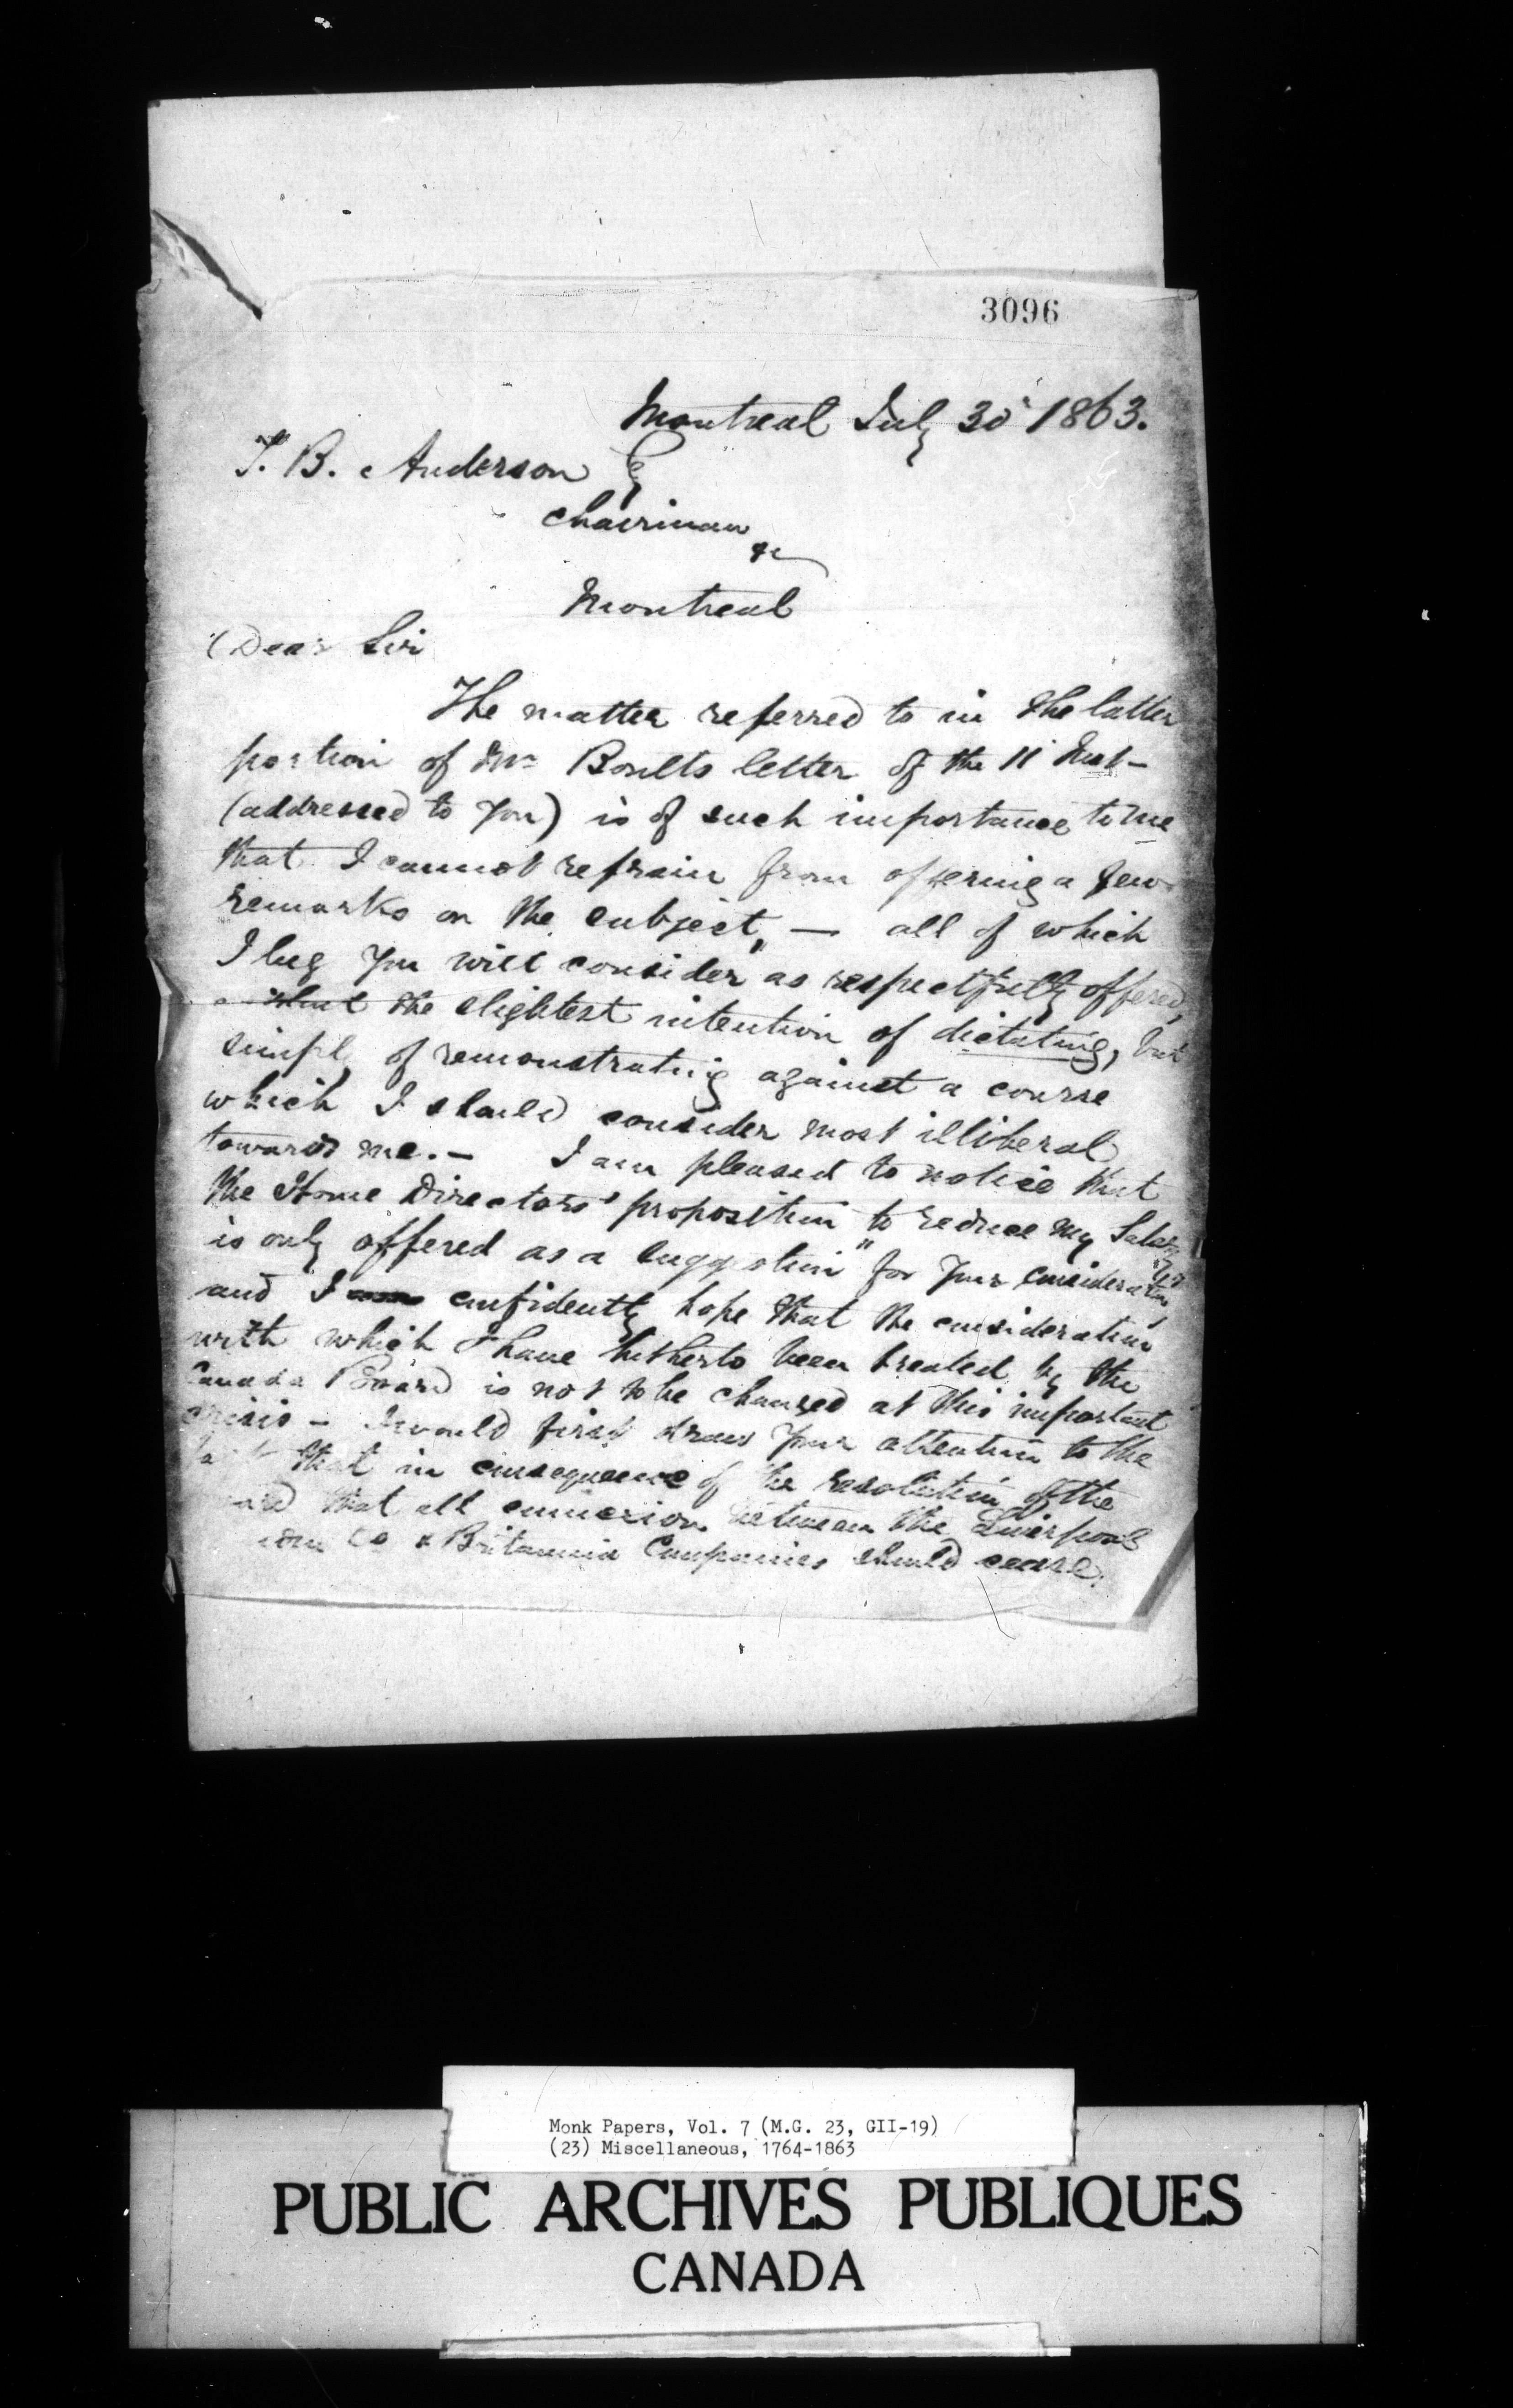 3096
Montreal July 30 1863.
T. B. Anderson Esq
Chairman
&c
Montreal
Dear Sir
The matter referred to in the latter
portion of Mr Boults letter of the 11 Inst-
(addressed to you) is of such importance to me
that I cannot refrain from offering a few
remarks on the subject, — all of which
I beg you will consider as respectfully offered,
without the slightest intention of dictating, but
simply of remonstrating against a course
which I should consider most illiberal
towards me. — I am pleased to notice that
the Home Directors' proposition to reduce my Salary
is only offered as a suggestion "for your consideration"
and I confidently hope that the consideration
with which I have hitherto been treated by the
Canada Board is not to be changed at this important
crisis - I would first draw your attention to the
fact that in consequence of the resolution of the
that all connexion between the Liverpool
Co & Britannia Companies should cease.
Monk Papers, Vol. 7 (M.G. 23, GII-19)
(23) Miscellaneous, 1764-1863
PUBLIC ARCHIVES PUBLIQUES
CANADA